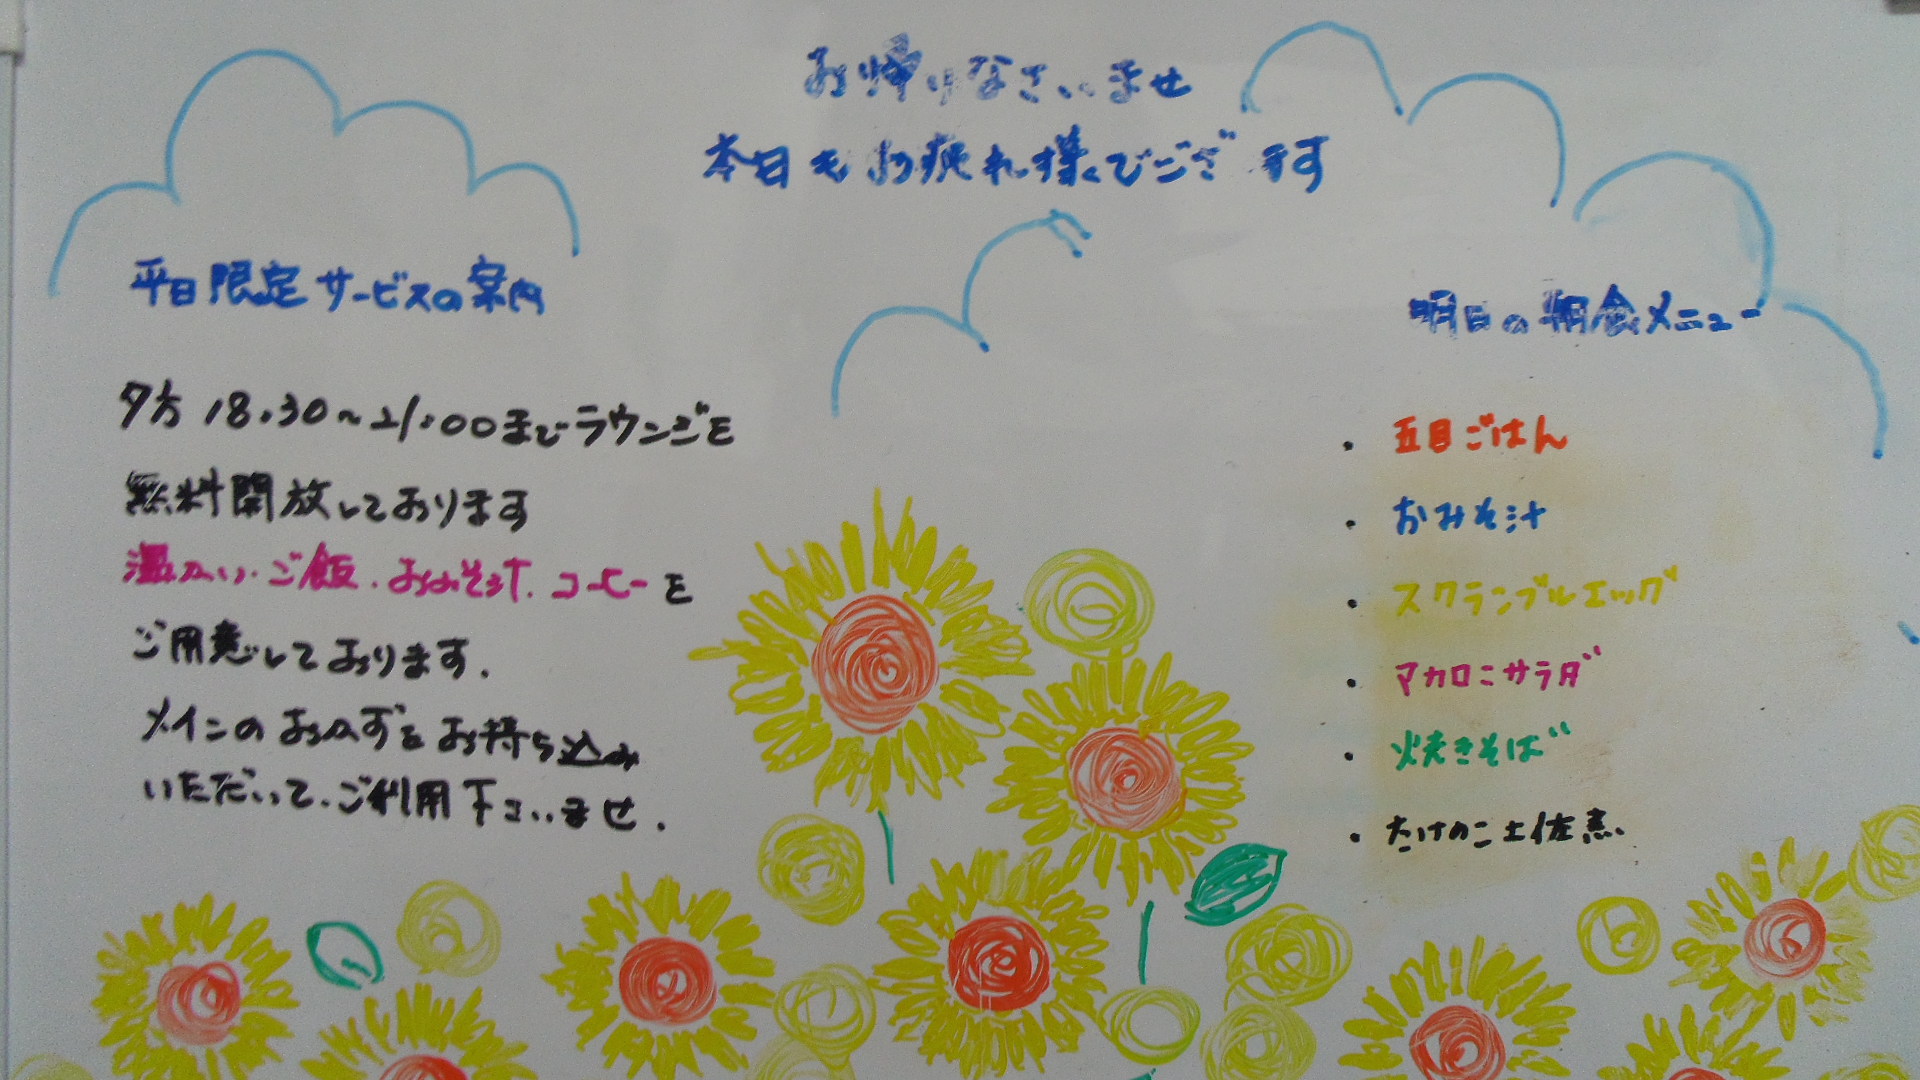 お帰りなさいませ
本日もお疲れ様でございます
平日限定サービスの案内
夕方 18:30〜21:00までラウンジを
無料開放しております
温かい・ご飯・おみそ汁・コーヒーを
ご用意しております.
メインのおかずをお持ち込み
いただいて、ご利用下さいませ.
明日の朝食メニュー
・五目ごはん
・おみそ汁
・スクランブルエッグ
・マカロニサラダ
・焼きそば
・たけのこ土佐煮